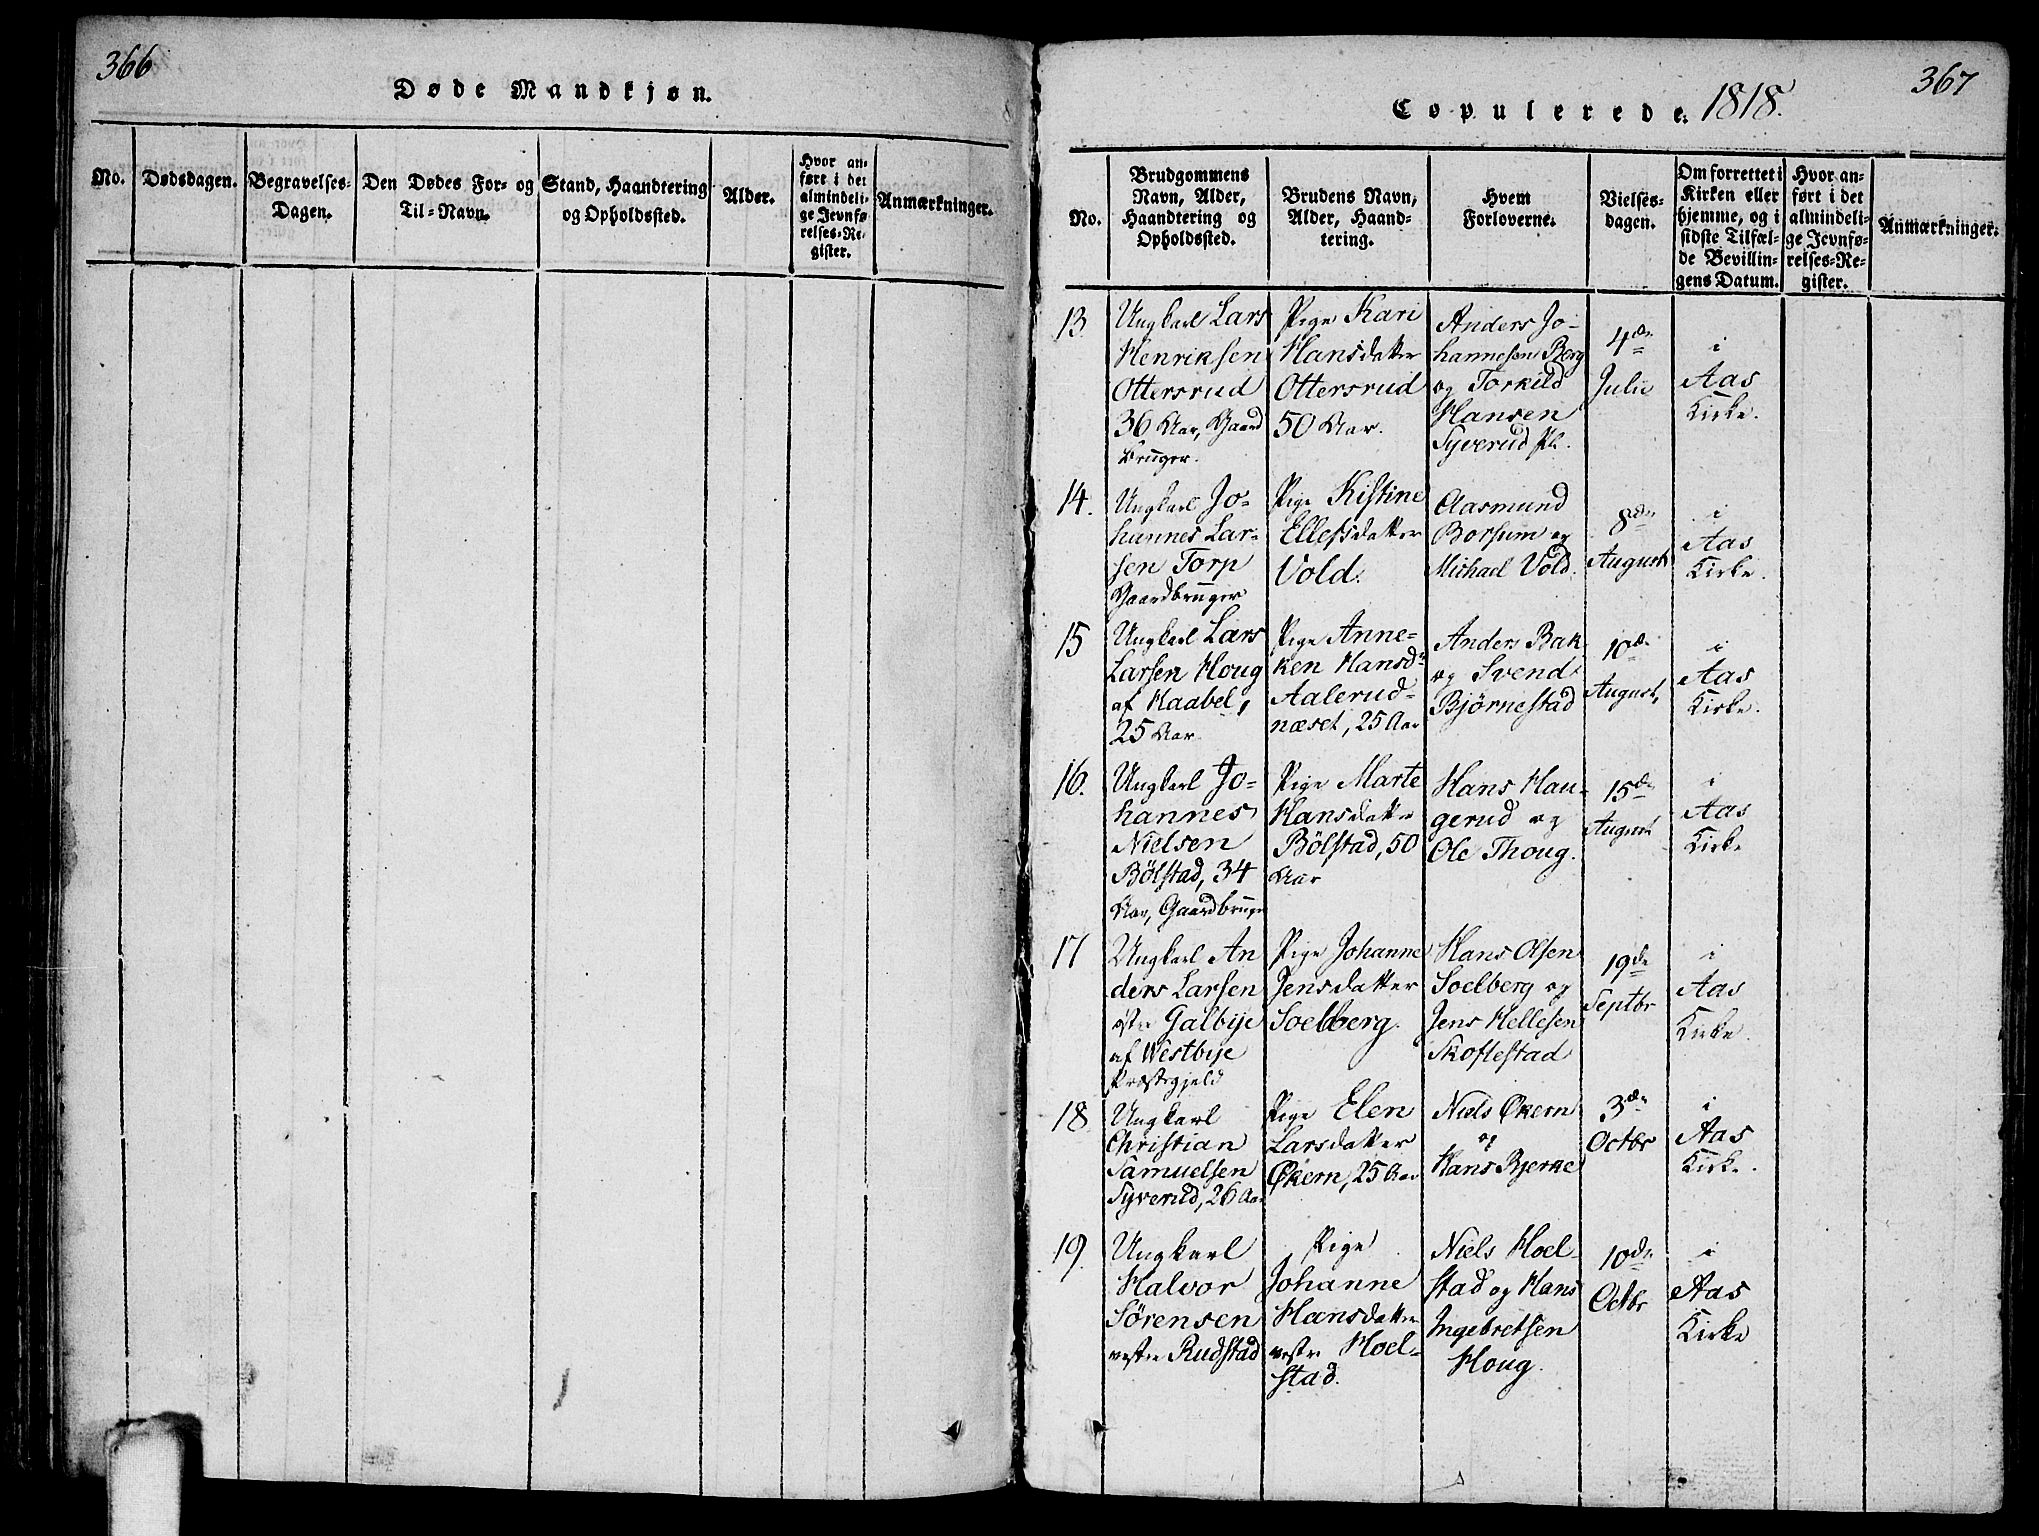 366
Døde Mandkjøn.
No.
Dødsdagen.
Begravelses-
Dagen.
Den Dødes For- og
Til-Navn.
Stand, Haandtering
og Opholdssted.
Alder.
Hvor an-
ført i det
almindeli-
ge Jevnfø-
relses-Re-
gister.
Anmærkninger.
367
Copulerede. 1818.
No.
Brudgommens
Navn, Alder,
Haandtering og
Opholdssted.
Brudens Navn,
Alder, Haand-
tering.
Hvem
Forloverne.
Vielses-
dagen.
Om forrettet i
Kirken eller
hjemme, og i
sidste Tilfæl-
de Bevillin-
gens Datum.
Hvor an-
ført i det
almindeli-
ge Jevnfø-
relses-Re-
gister.
Anmærkninger.
13
Ungkarl Lars
Henriksen
Ottersrud
36 Aar, Gaard
bruger.
Pige Kari
Hansdatter
Ottersrud
50 Aar.
Anders Jo-
hannesen Berg
og Torkild
Hansen
Syverud Pl.
4de
Julie
i
Aas
Kirke.
14.
Ungkarl Jo-
hannes Lar-
sen Torp
Gaardbruger
Pige Kistine
Ellefsdatter
Vold.
Aasmund
Borsum og
Michael Vold.
8de
August
i
Aas
Kirke.
15
Ungkarl Lars
Larsen Houg
af Kaabel,
25 Aar
Pige Anne-
ken Hansdr
Aalerud-
næset, 25 Aar
Anders Bak
og Svend
Bjørnestad
10de
August,
i
Aas
Kirke.
16.
Ungkarl Jo-
hannes
Nielsen
Bölstad, 34
Aar, Gaardbruger
Pige Marte
Hansdatter
Bölstad, 50
Aar
Hans Hau-
gerud og
Ole Thoug.
15de
August
i
Aas
Kirke
17
Ungkarl An
ders Larsen
østre Galbye
af Westbye
Præstegjeld
Pige Johanne
Jensdatter
Soelberg.
Hans Olsen
Soelberg og
Jens Hellesen
Skoflestad
19de
Septbr
i
Aas
Kirke.
18
Ungkarl
Christian
Samuelsen
Syverud, 26 Aar
Pige Elen
Larsdatter
Økern, 25 Aar
Niels Økern
og
Hans Bjerke
3de
Octbr
i
Aas
Kirke.
19.
Ungkarl
Halvor
Sörensen
vestre Rudstad
Pige
Johanne
Hansdatter
vestre Hoel-
stad.
Niels Hoel
stad og Hans
Ingebretsen
Houg.
10de
Octbr
i
Aas
Kirke